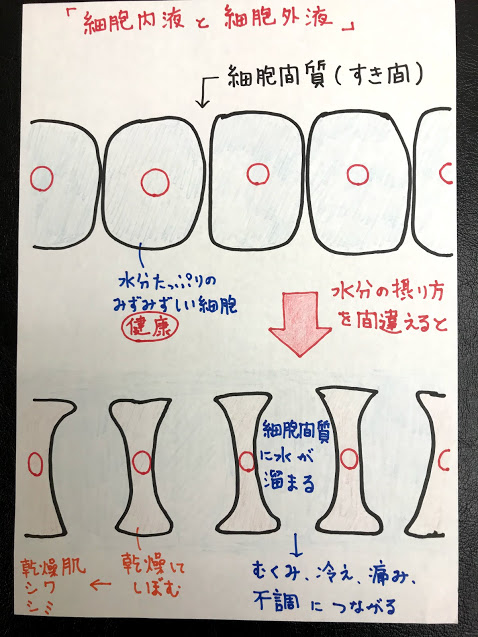 「細胞内液と細胞外液」
細胞間質(すき間)
水分たっぷりの
みずみずしい細胞
健康
水分の摂り方
を間違えると
細胞間質
に水が
溜まる
乾燥して
しぼむ
乾燥肌
シワ
シミ
むくみ、冷え、痛み、
不調につながる